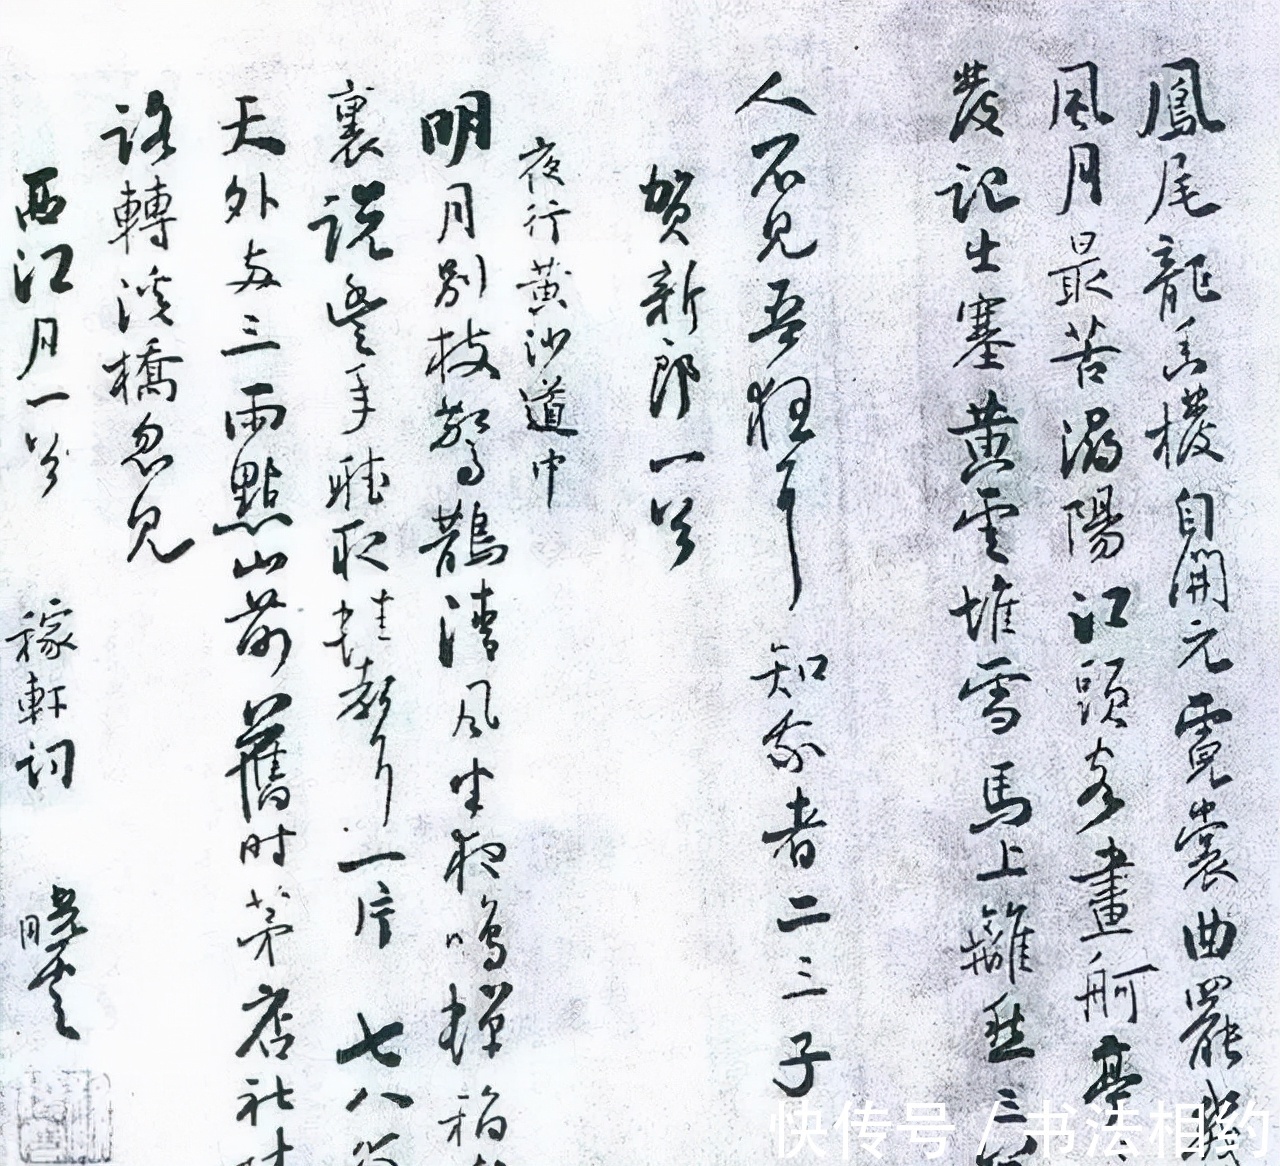 鳳尾龍香撥自開元霓裳曲罷
風月最苦潯陽江頭客畫舸亭
發記出塞黄雲堆雪馬上離愁三
人不見吾狂耳 知我者二三子
賀新郎一首
夜行黄沙道中
明月别枝驚鵲清風半夜鳴蟬稻
裏説豐年聽取蛙聲一片 七八個
天外 三兩點山前舊时茅店社
路轉溪橋忽見
西江月一首 稼軒词
快传号 / 书法相约